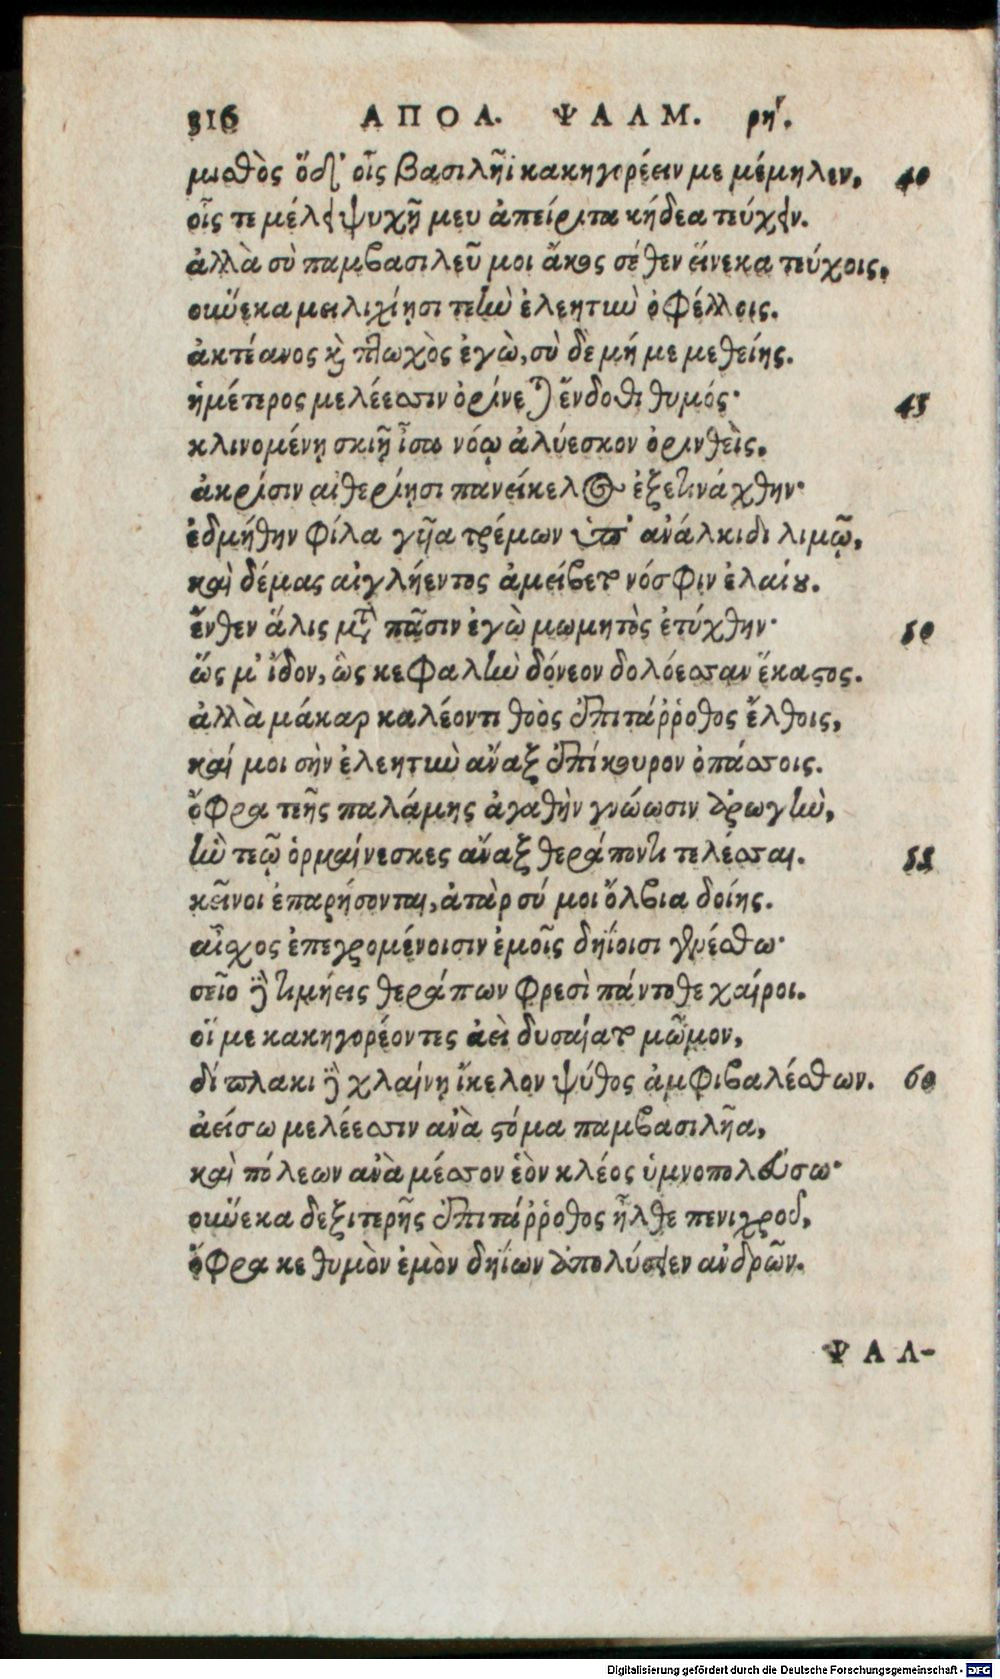 316 ΑΠΟΛ. ΨΑΛΜ. ρη΄.
μισθὸς ὅδ᾽ οἷς βασιλῆϊ κακηγορέειν με μέμηλεν, 40
οἷς τε μέλει ψυχῇ μευ ἀπείριτα κήδεα τεύχειν.
ἀλλὰ σὺ παμβασιλεῦ μοι ἄκος σέθεν εἵνεκα τεύχοις,
οὕνεκα μειλιχίῃσι τεὴν ἐλεητὺν ὀφέλλοις.
ἀκτέανος καὶ πτωχὸς ἐγὼ, σὺ δὲ μή με μεθείης.
ἡμέτερος μελέεσσιν ὀρίνεται ἔνδοθι θυμός· 45
κλινομένῃ σκιῇ ἶσα νόῳ ἀλύεσκον ὀρινθεὶς.
ἀκρίσιν αἰθερίῃσι πανείκελος ἐξετινάχθην·
ἐδμήθην φίλα γυῖα τρέμων ὑπ᾽ ἀνάλκιδι λιμῷ,
καὶ δέμας αἰγλήεντος ἀμείβετο νόσφιν ἐλαίου.
ἔνθεν ἅλις μετὰ πᾶσιν ἐγὼ μωμητὸς ἐτύχθην· 50
ὥς μ᾽ ἴδον, ὣς κεφαλὴν δόνεον δολόεσσαν ἕκαστος.
ἀλλὰ μάκαρ καλέοντι θοὸς ἐπιτάῤῥοθος ἔλθοις,
καί μοι σὴν ἐλεητὺν ἄναξ ἐπίκουρον ὀπάσσοις.
ὄφρα τεῆς παλάμης ἀγαθὴν γνώωσιν ἀρωγὴν,
ἣν τεῷ ὁρμαίνεσκες ἄναξ θεράποντι τελέσσαι. 55
κεῖνοι ἐπαρήσονται, ἀτὰρ σύ μοι ὄλβια δοίης.
αἶσχος ἐπεγρομένοισιν ἐμοῖς δηΐοισι γενέσθω·
σεῖο δὲ τιμήεις θεράπων φρεσὶ πάντοθε χαίροι.
οἵ με κακηγορέοντες ἀεὶ δυσαίατο μῶμον,
δίπλακι δὲ χλαίνῃ ἴκελον ψύθος ἀμφιβαλέσθων. 60
ἀείσω μελέεσσιν ἀνὰ στόμα παμβασιλῆα,
καὶ πόλεων ἀνὰ μέσσον ἑὸν κλέος ὑμνοπολεύσω·
οὕνεκα δεξιτερῆς ἐπιτάῤῥοθος ἦλθε πενιχροῦ,
ὄφρα κε θυμὸν ἐμὸν δηΐων ἀπολύσειεν ἀνδρῶν.
ΨΑΛ-
Digitalisierung gefördert durch die Deutsche Forschungsgemeinschaft - DFG